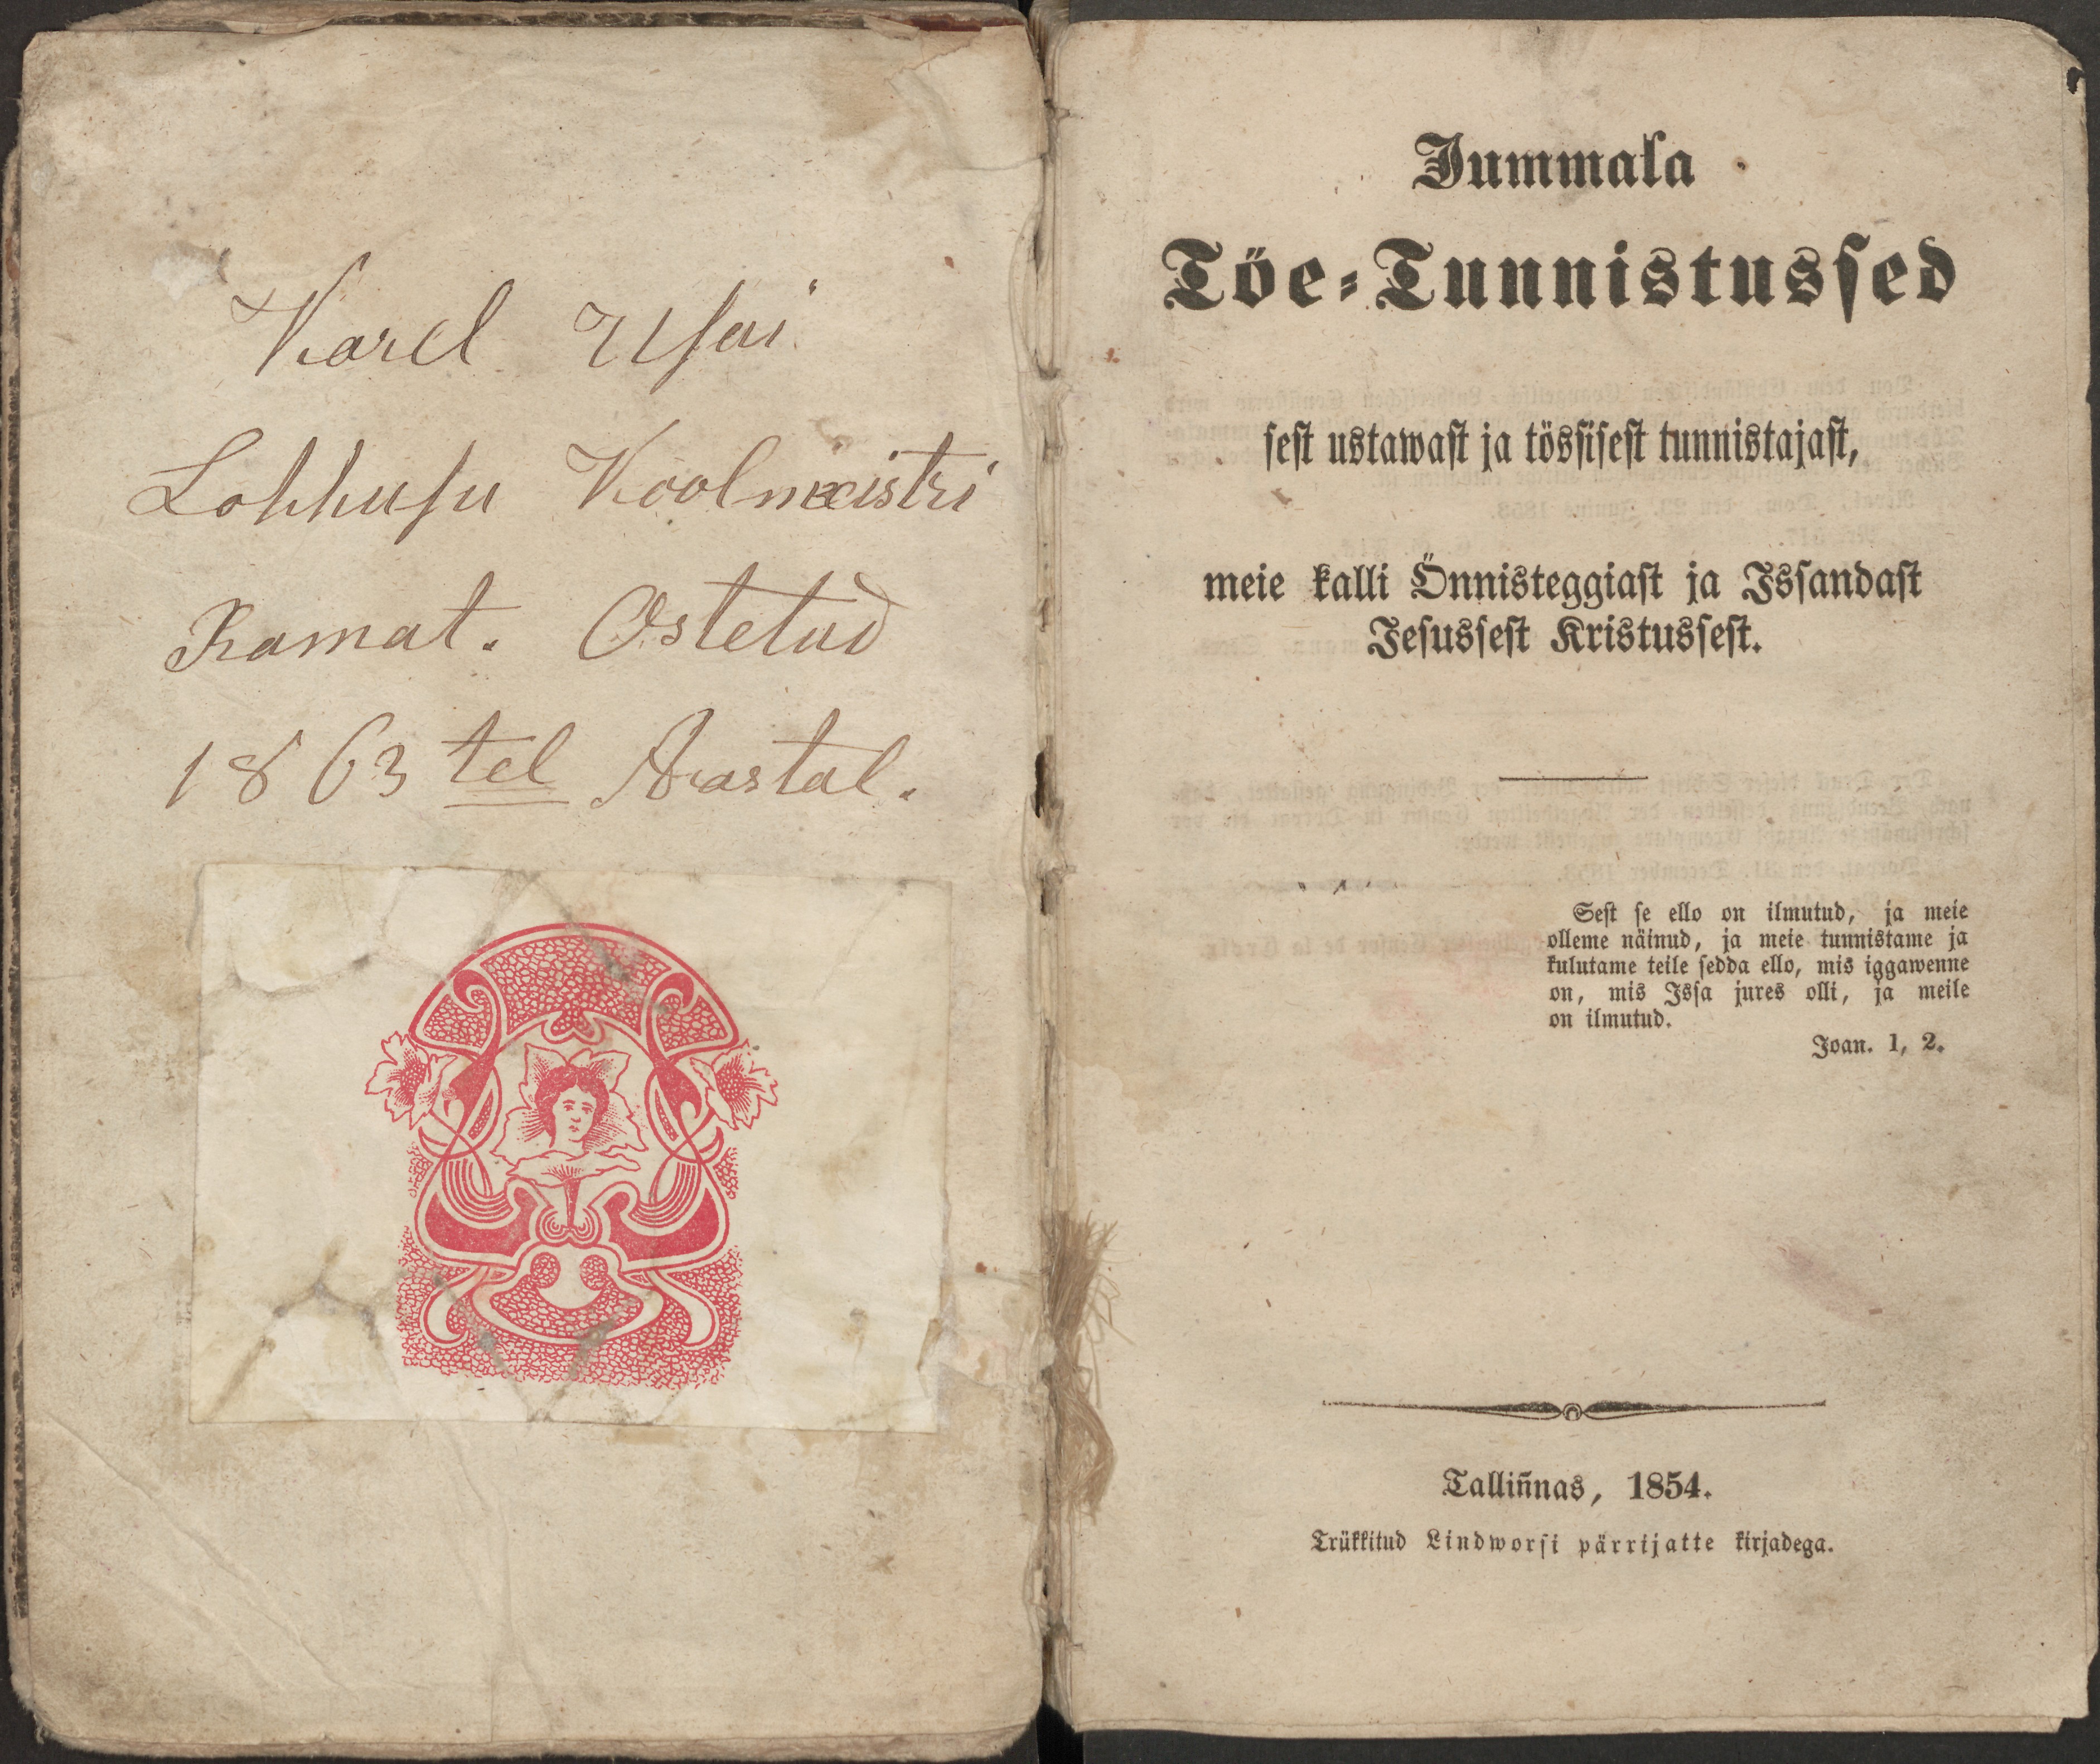 Karel Usai
Lohhusu Koolmeistri
Ramat. Ostetud
1863 tel Aastal.
Jummala
Töe-Tunnistussed
sest ustawast ja tössisest tunnistajast,
meie kalli Önnisteggiast ja Issandast
Jesussest Kristussest.
Sest se ello on ilmutud, ja meie
olleme näinud, ja meie tunnistame ja
kulutame teile sedda ello, mis iggawenne
on, mis Issa jures olli, ja meile
on ilmutud.
Joan. 1, 2.
Tallin̄nas, 1854.
Trükkitud Lindworsi pärrijatte kirjadega.